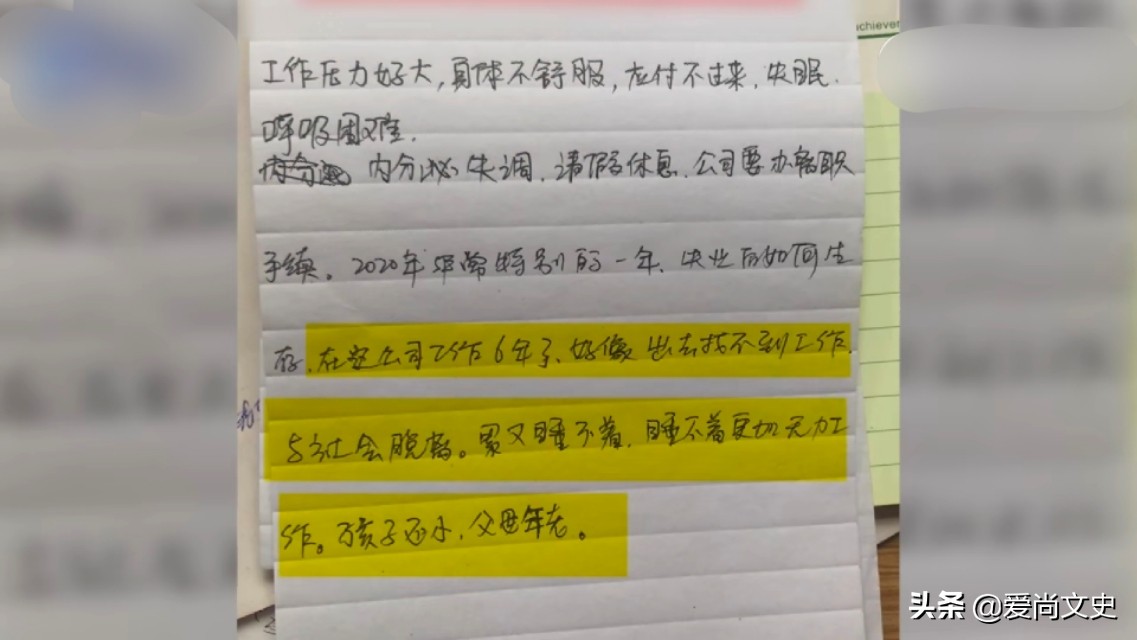 achiever
工作压力好大,身体不舒服,应付不过来,失眠.
呼吸困难.
内分泌 内分泌失调,请假休息,公司要办离职
手续。2020年非常特别的一年,失业后如何生
存,在这公司工作6年了,好像出去找不到工作,
与社会脱离。累又睡不着,睡不着更加无力工
作。孩子还小,父母年老。
头条 @爱尚文史